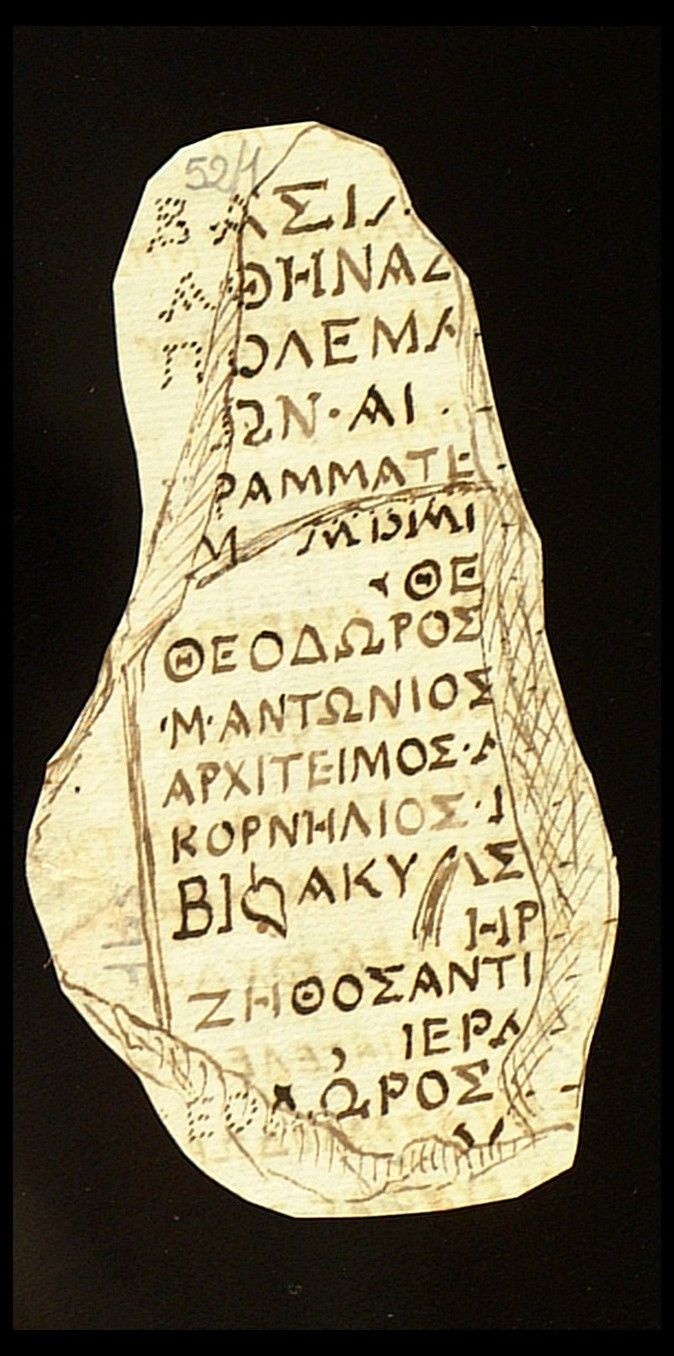 52/1
ΒΑΣΙΛ
ΑΘΗΝΑΣ
ΠΟΛΕΜΑ
ΩΝ·ΑΙ
ΡΑΜΜΑΤΕ
ΘΕ
ΘΕΟΔΩΡΟΣ
·Μ·ΑΝΤΩΝΙΟΣ
ΑΡΧΙΤΕΙΜΟΣ·Α
ΚΟΡΝΗΛΙΟΣ·
ΗΡ
ΖΗΘΟΣΑΝΤΙ
ΙΕΡΑ
ΕΟΔΩΡΟΣ